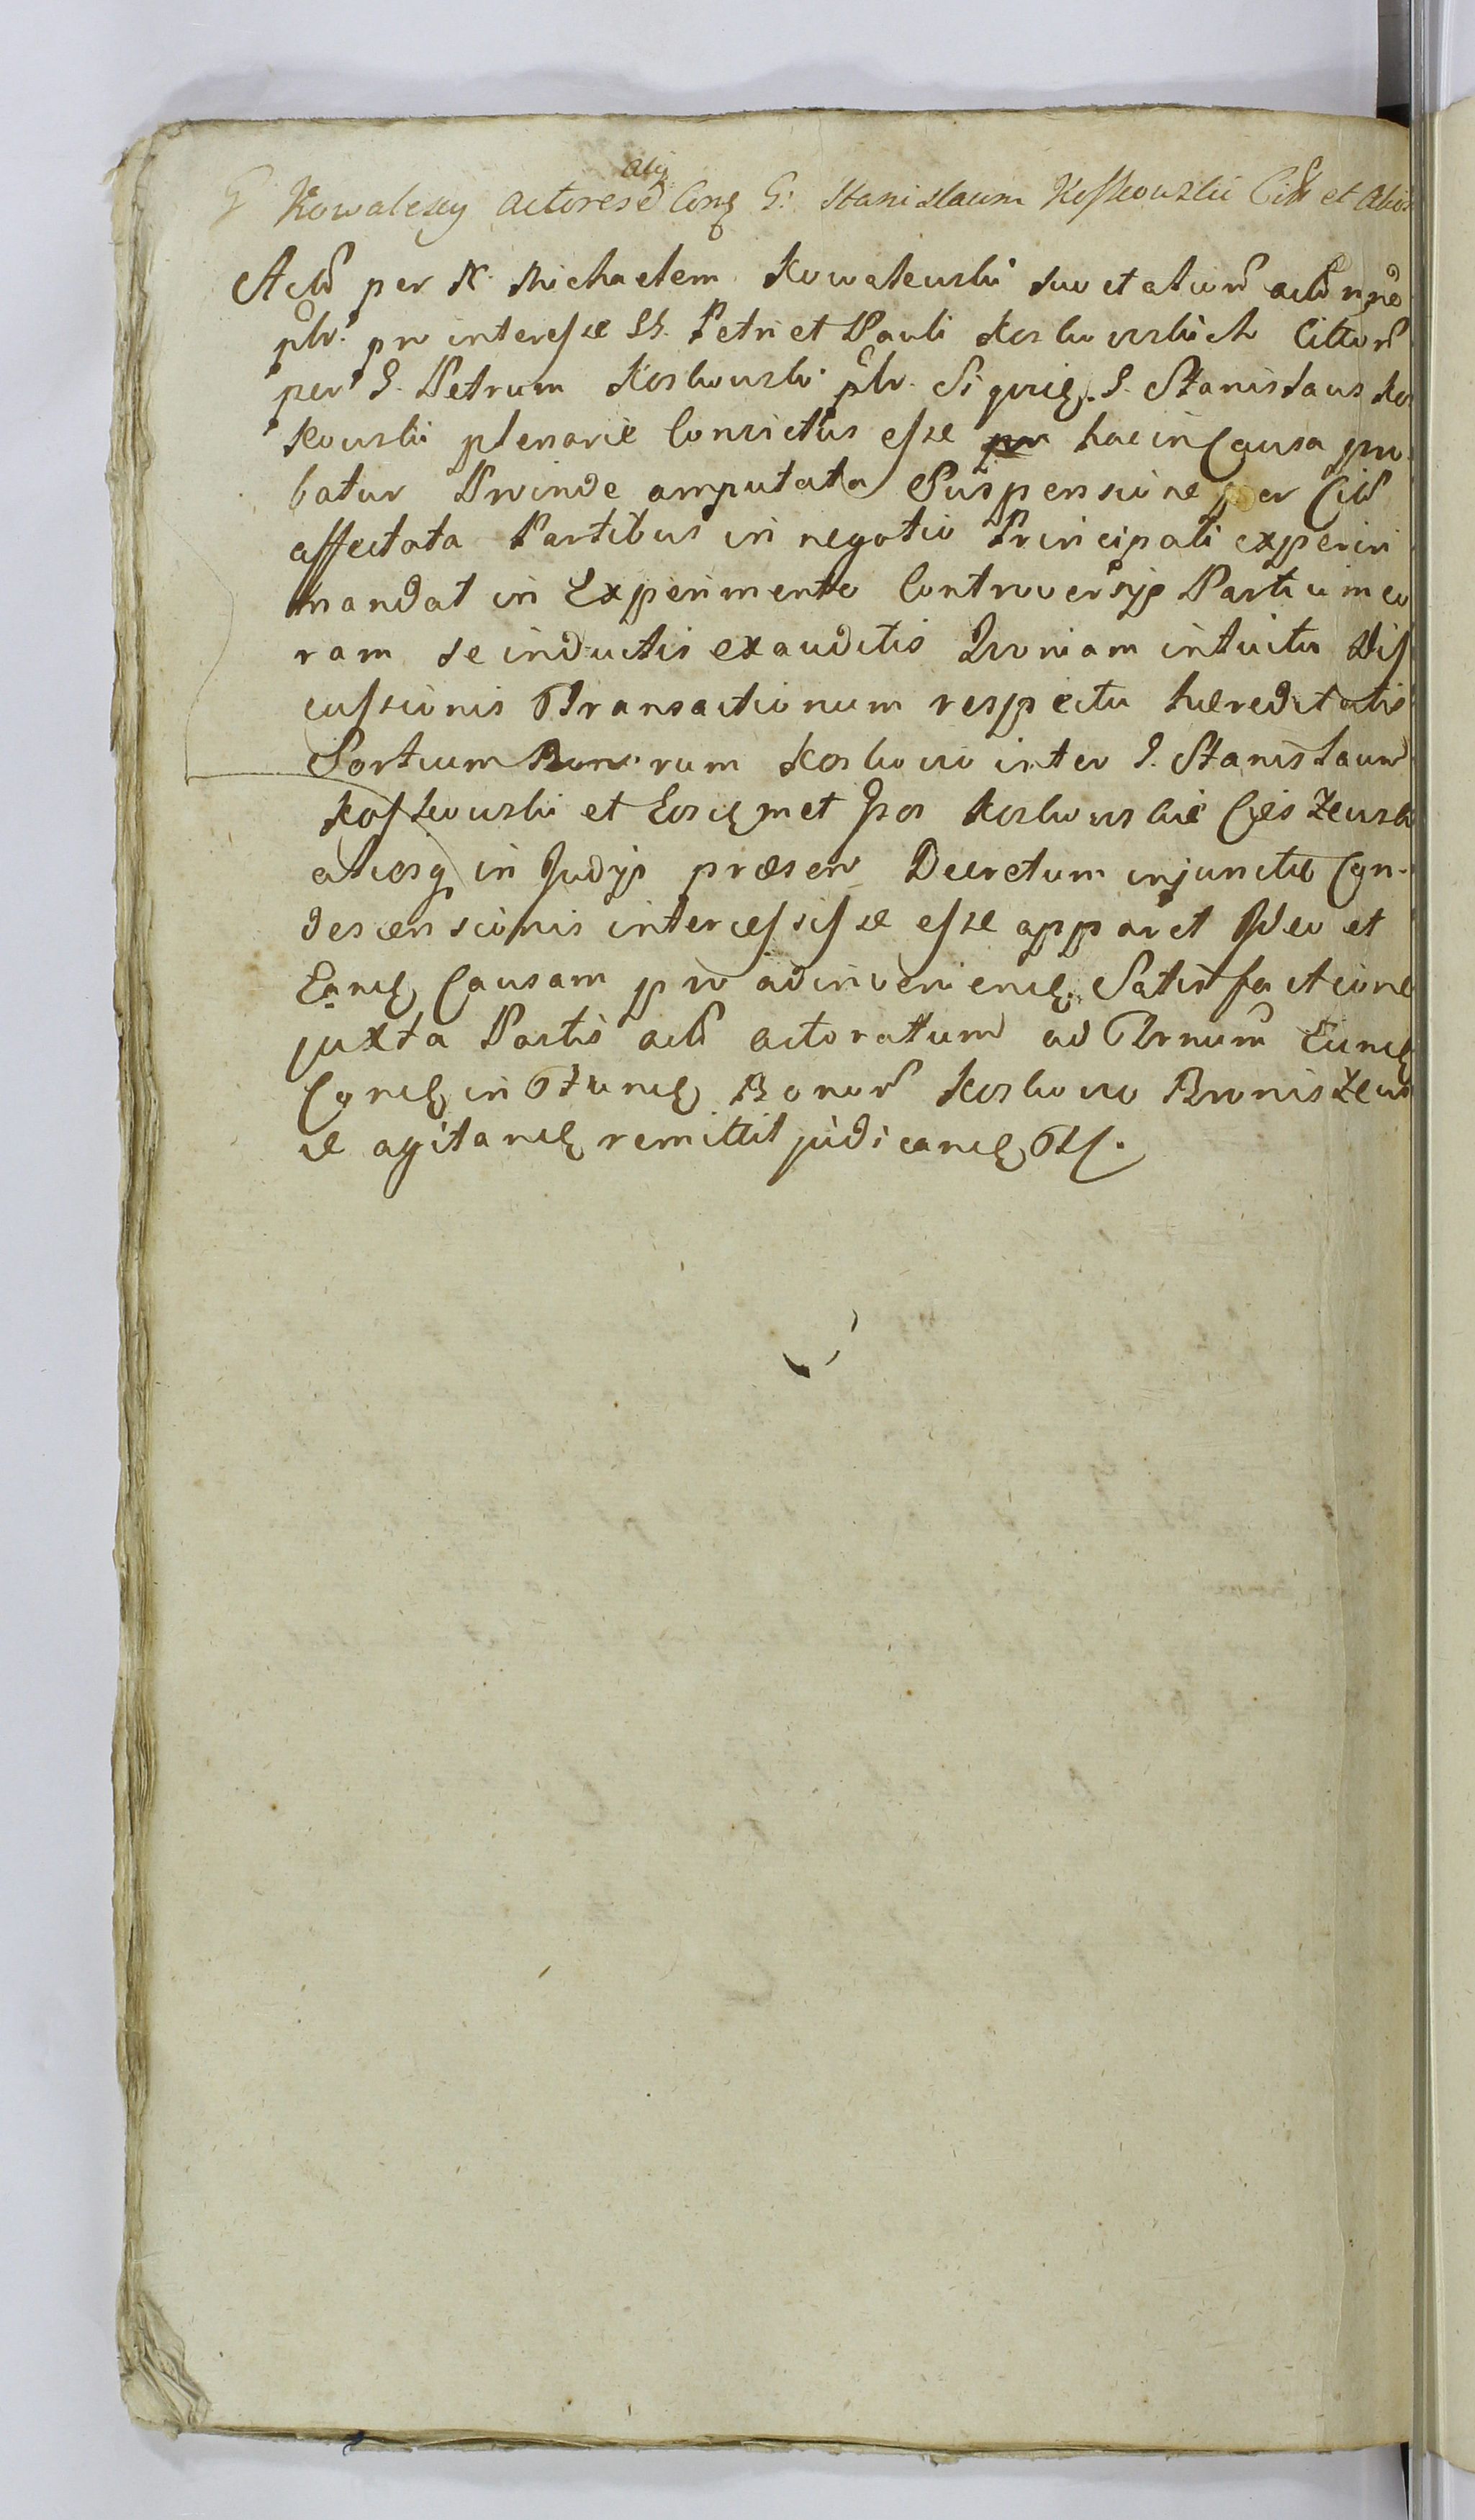 G Kowalescy Actores Con G: Stanislaum Koskowski Cit et Alios
alij
Act per N. Michaelem Kowalewski suo et alior act nne
plr. pro interesse SS. Petri et Pauli Koskowskich Cittor
per G. Petrum Koskowski plr. Siquid. G. Stanislaus Kos
kowski plenarie Convictus esse pr hac in Causa pro
batur Proinde amputata Suspensione per Cit
affectata Partibus in negotio Principali experiri
mandat in Experimento Controversijs Partium co
ram se inductis exauditis Quoniam intuitu Dis
cussionis Transactionum respectu hæreditatis
Sortium Bonorum Koskowo inter G. Stanislaum
Koskowski et Eosdmet Koskowskie
aliosq in Judijs præsens Decretum injunctæ Con-
descensionis intercessisse esse apparet Ideo et
Eand Causam pro adinveniend Satisfactione
juxta Partis act actoratum ad Trnum Eund
Cond in Fund Bonor Koskowo Broniszew
ie agitand remittit judicand